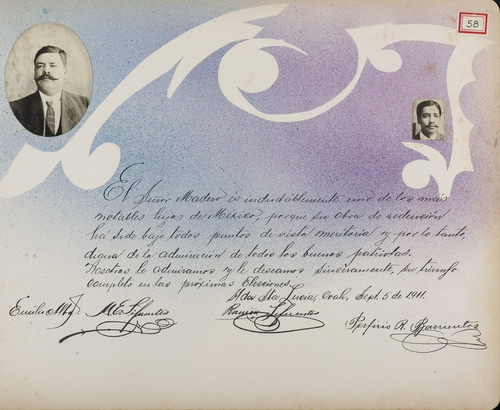 58
El Señor Madero es indudablemente uno de los más
notables hijos de México, porque su obra de redención
ha sido bajo todos puntos de vista meritoria y por lo tanto,
digna de la admiración de todos los buenos patriotas.
Nosotros le admiramos y le deseamos sinceramente, su triunfo
completo en las próximas Elecciones.
Sta Lucia, Coah, Sept 5 de 1911.
Emilio M. E. Sifuentes Ramón Sifuentes
Porfirio R. Barrientos